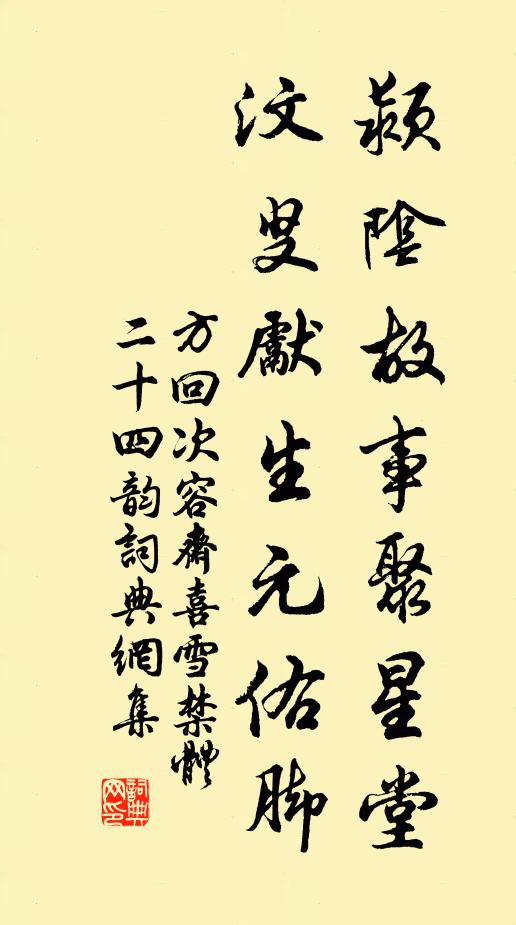 潁陰故事聚星堂
汶叟獻生元佑脚
方回次容齋喜雪禁體
二十四韵詞典網集
詞典网印